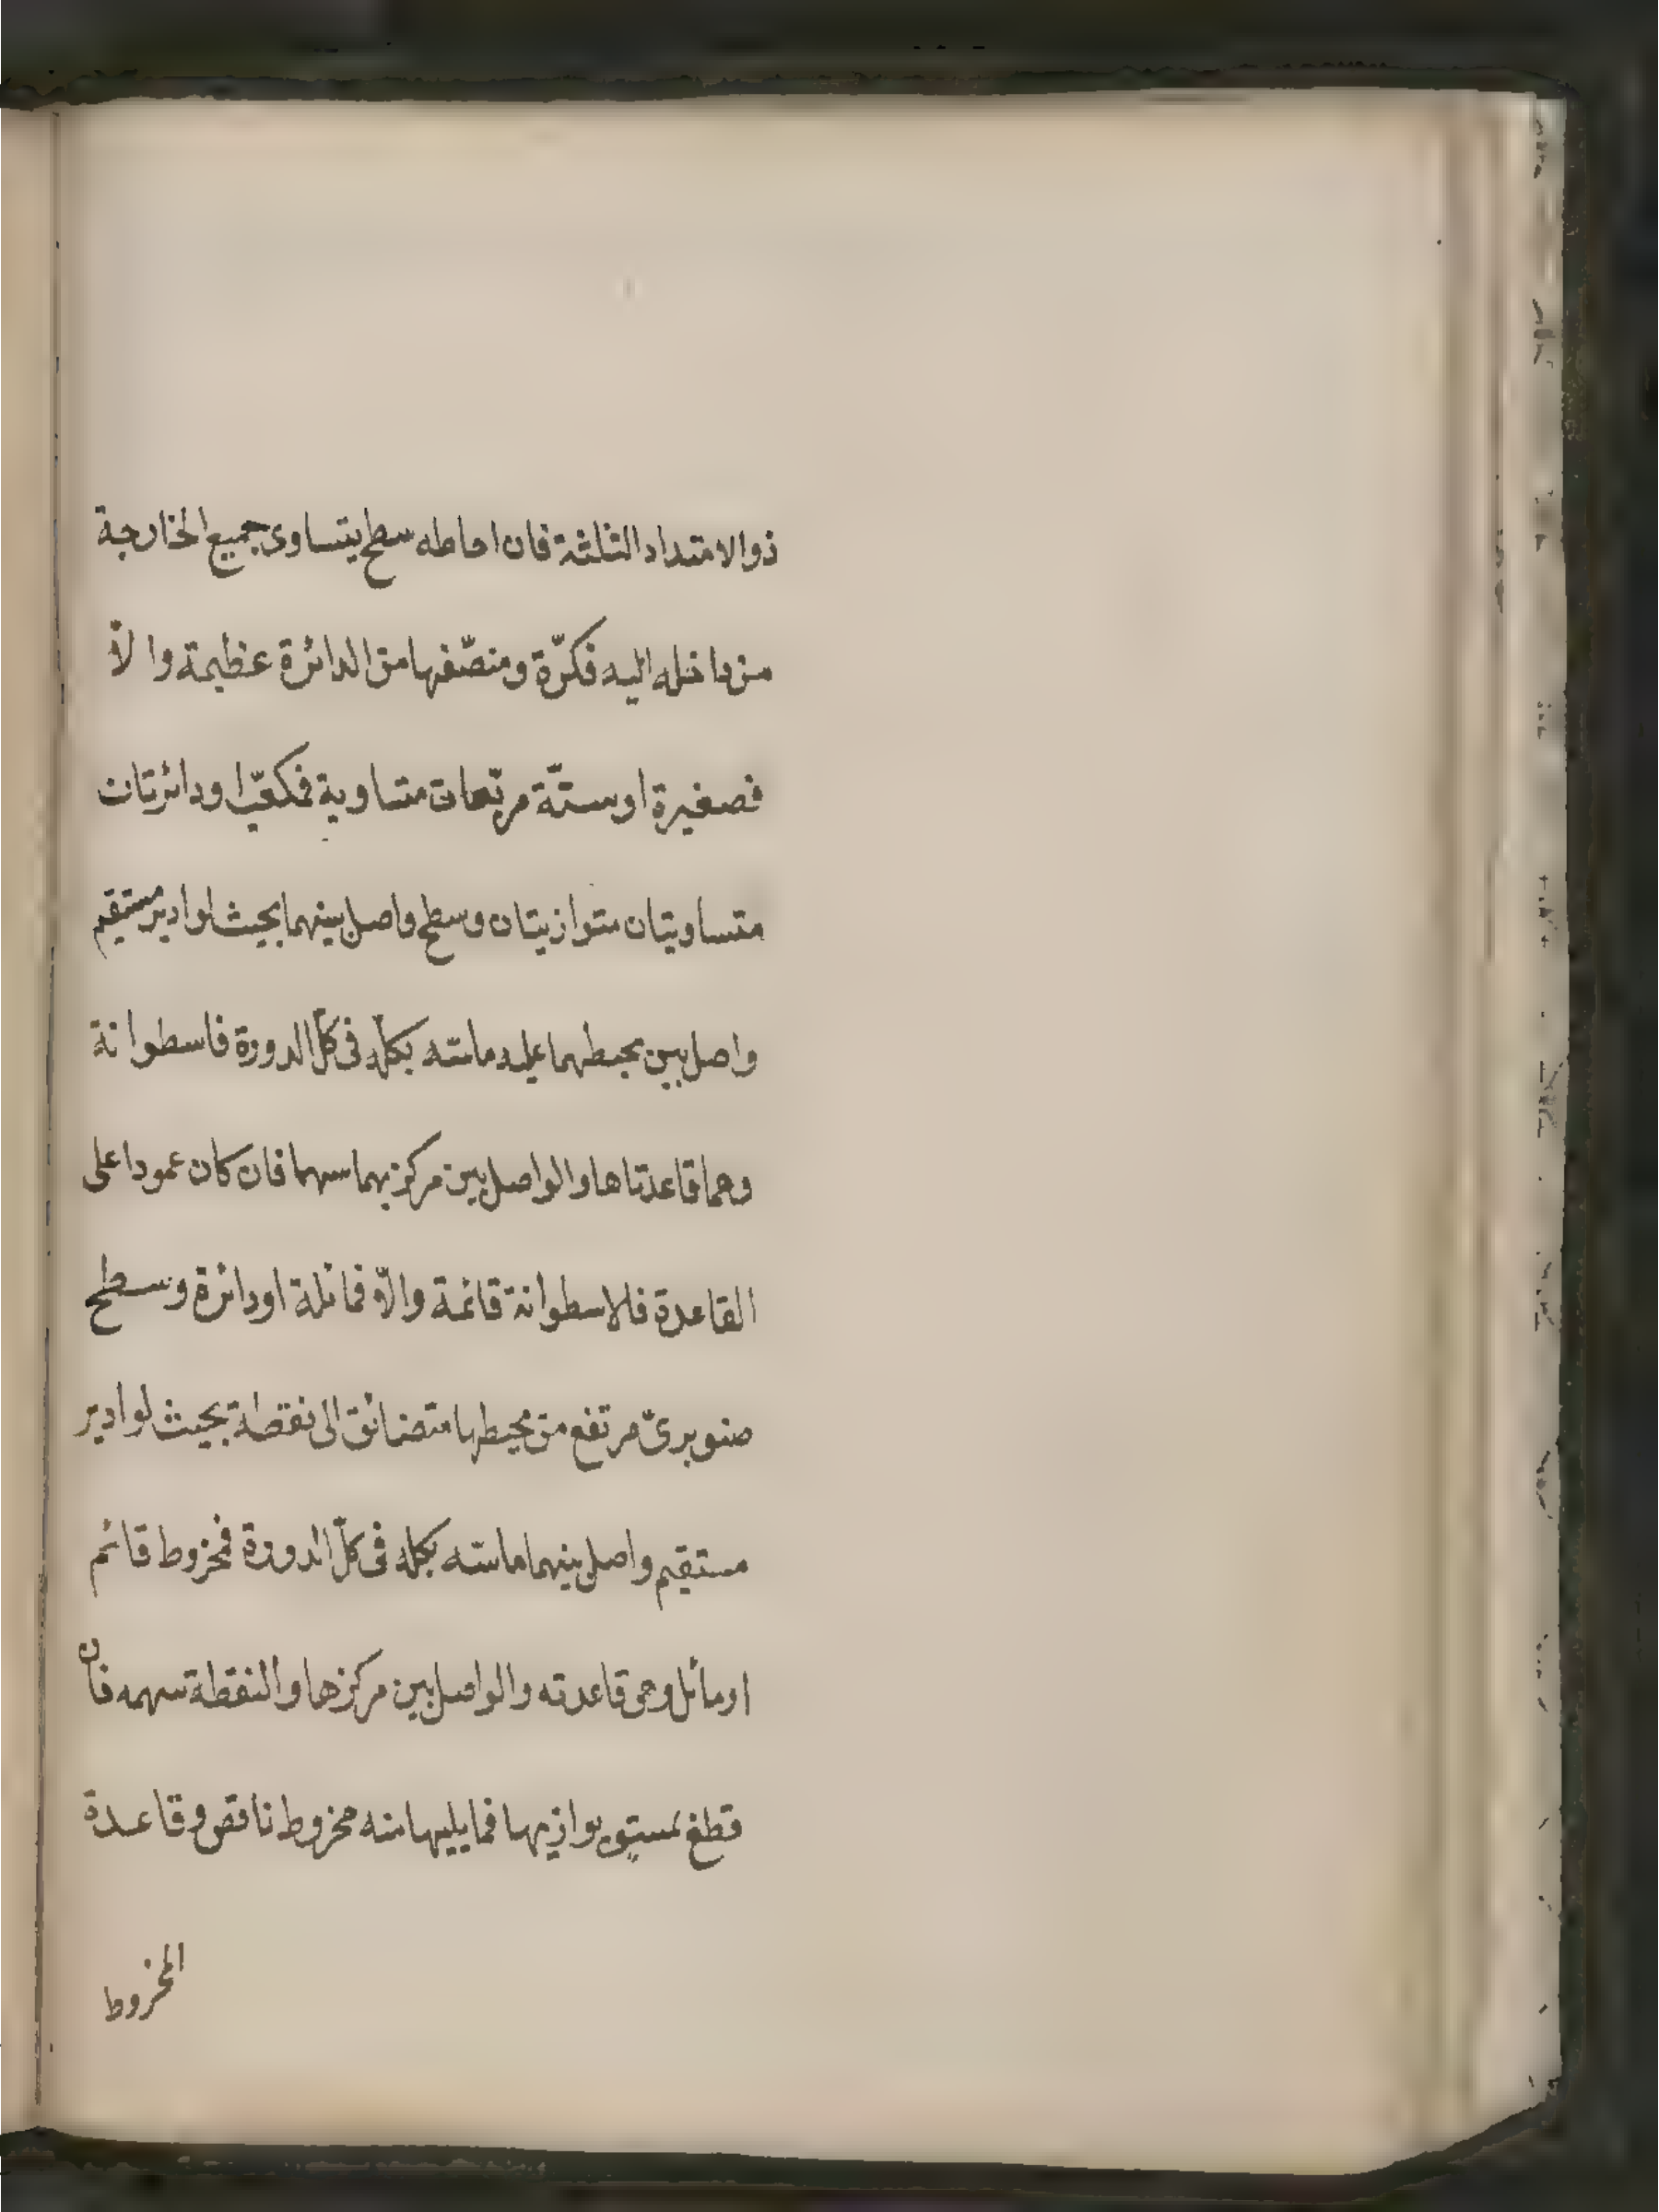 ذو الامتداد الثلثة فان احاطه سطح يتساوى جميع الخارجة
من داخله اليه فكرّة ومنصّفها من الدائرة عظيمة والاّ
فصغيرة او ستّة مربّعات متساوية فمكعّب او دائرتان
متساويتان متوازيتان وسطح واصل بينهما بحيث لو ادير مستقيم
واصل بين محيطهما عليه ماسّه بكلّه فى كلّ الدورة فاسطوانة
وهما قاعدتاها والواصل بين مركزيهما سهما فان كان عمودا على
القاعدة فالاسطوانة قائمة والاّ فمائلة او دائرة وسطح
صنوبرىّ مرتفع من محيطها متضائق الى نقطة بحيث لو ادير
مستقيم واصل بينهما ماسّه بكله فى كلّ الدورة فمخروط قائم
او مائل وهى قاعدته والواصل بين مركزها والنقطة سهمه فان
قطع بمستوٍ يوازيها فما يليها منه مخروط ناقص وقاعدة
المخروط